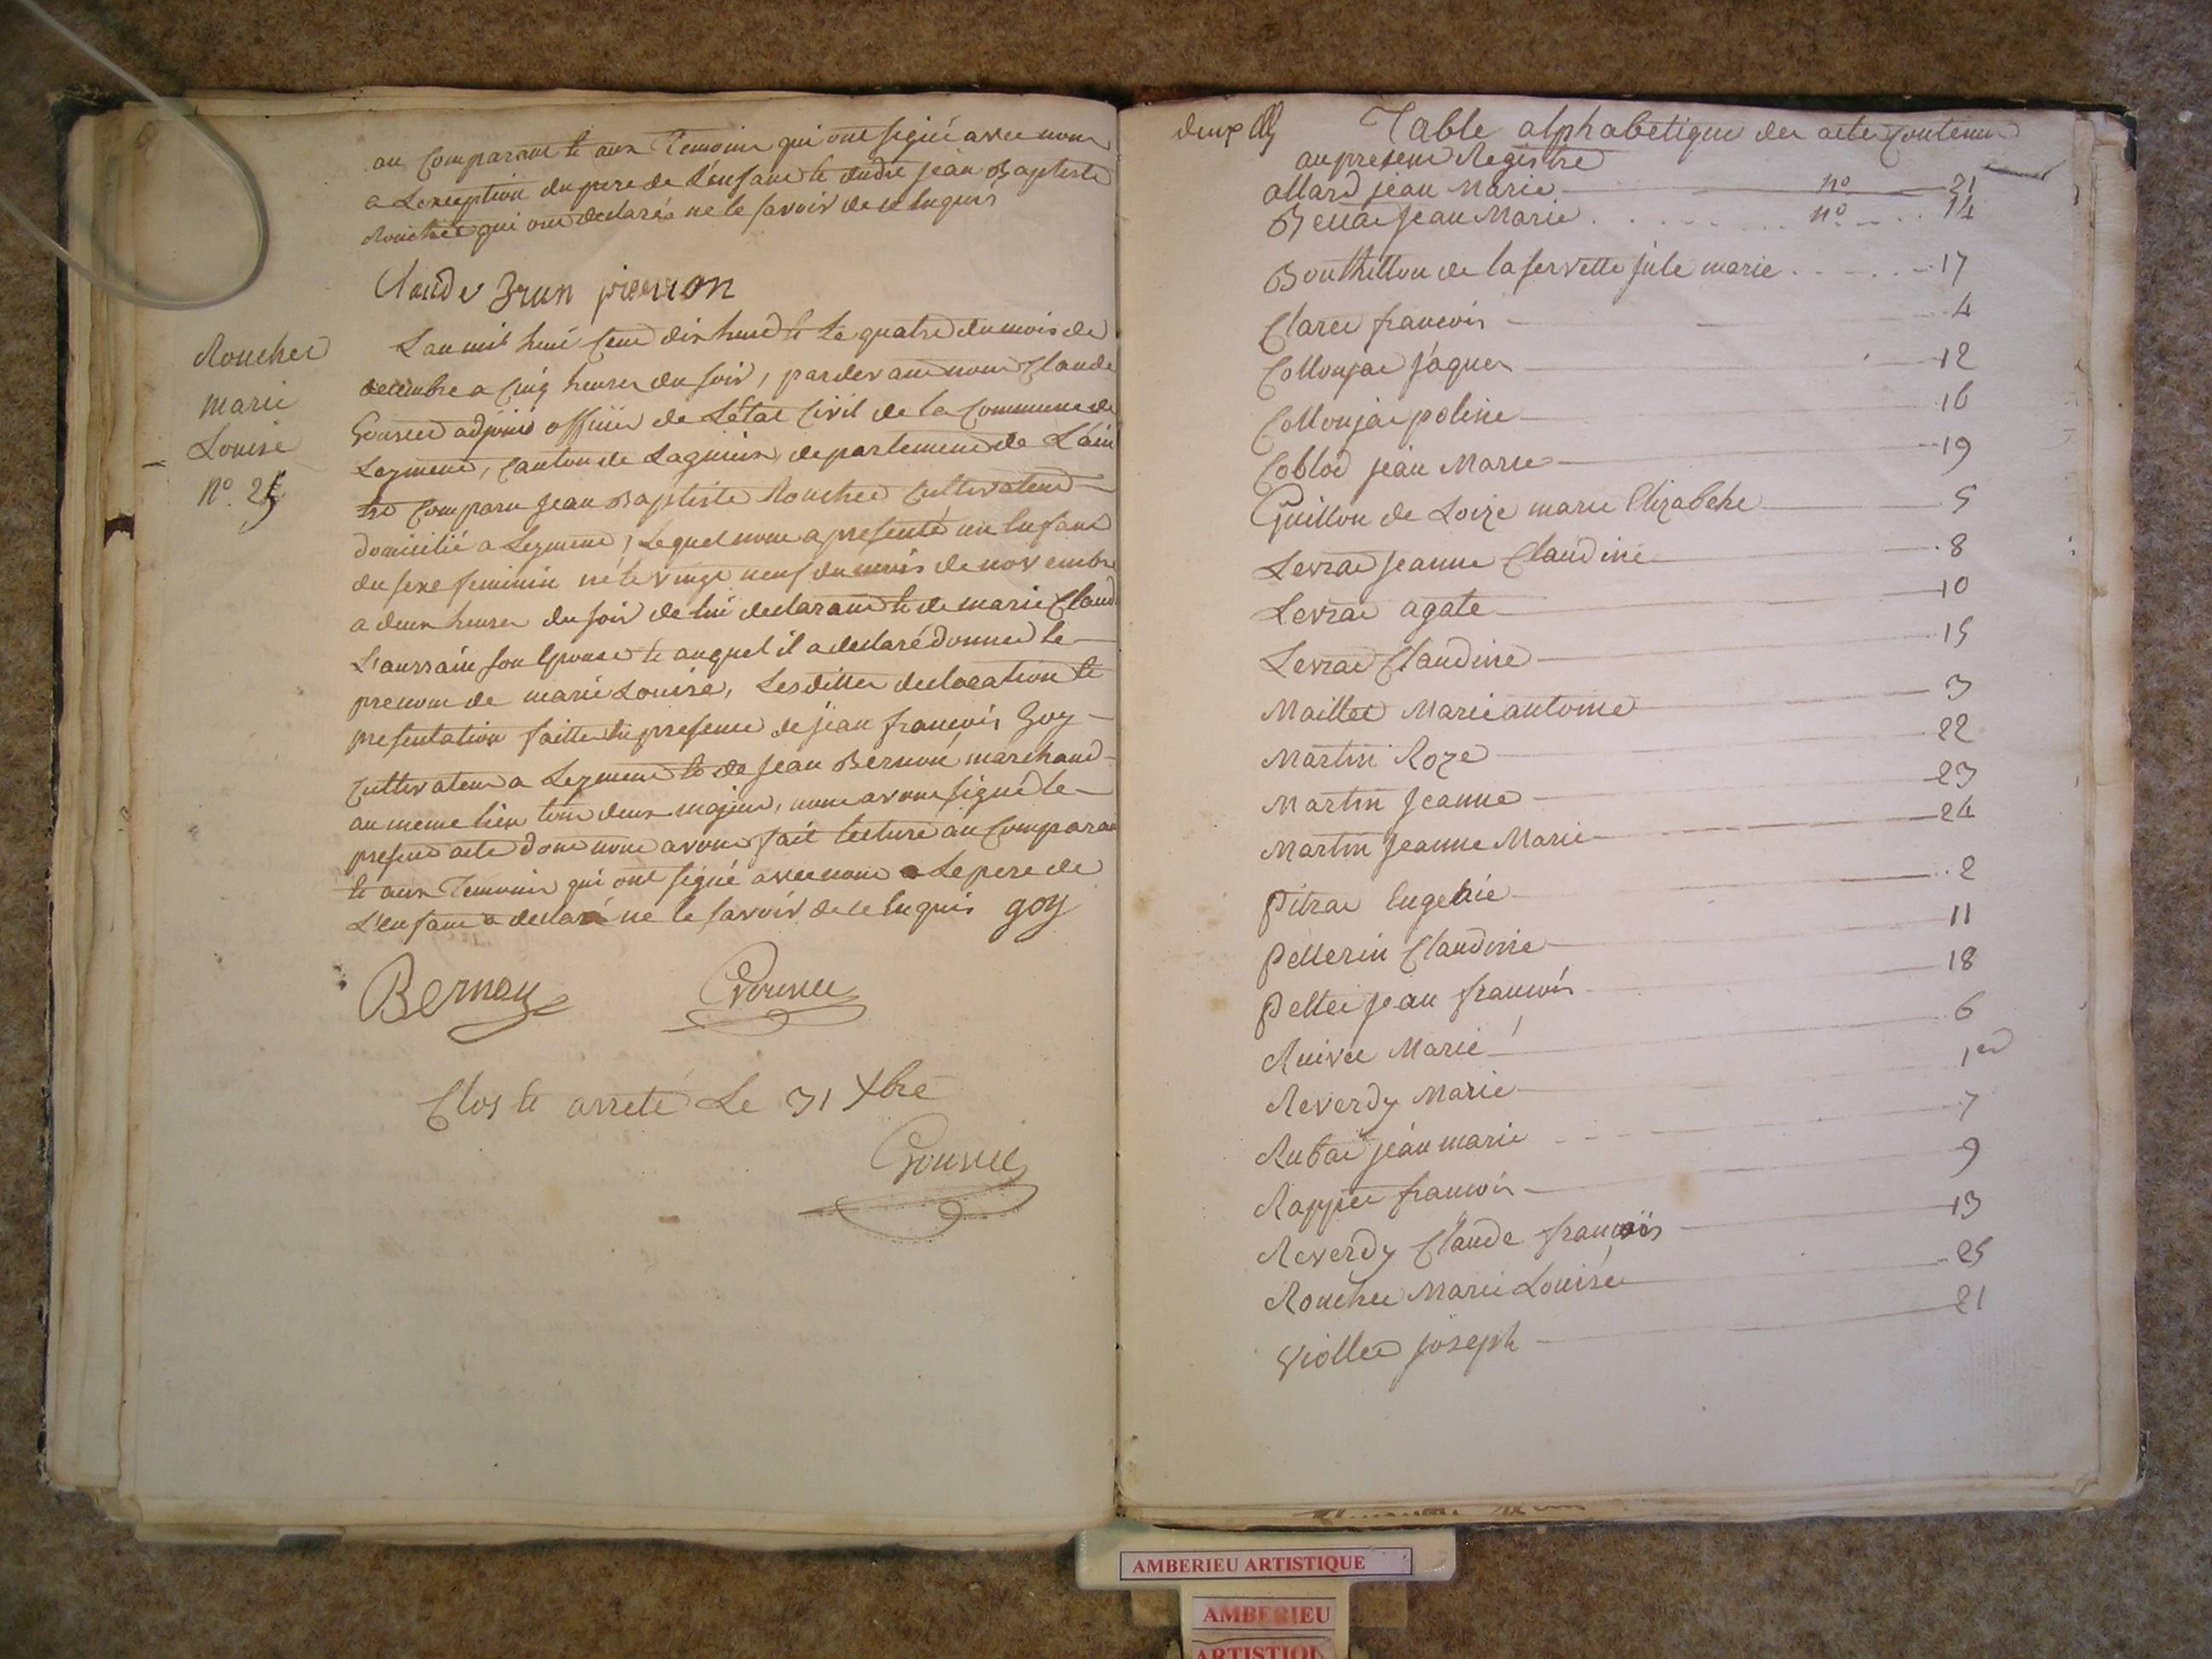 au Comparant et aux Temoins qui ont signé avec nous
a Lexception du pere de L'enfant et dudit jean Baptiste
Rouchet qui ont declarés ne le savoir de ce Enquis
Claude Brun pierron
Rouchet
marie
Louise
N.o 25
L'an mil huit Cent dix huit et Le quatre du mois de
decembre a Cinq heures du soir, pardevant nous Claude
adjoint officier de L'état Civil de la Commune de
Leyment, Canton de Lagnieux, departement de L'ain
est Comparu Jean Baptiste Rouchet Cultivateur
domicilié a Leyment, Lequel nous a presenté un Enfant
du sexe feminin né le vingt neuf du mois de novembre
a deux heures du soir de lui declarant et de marie Claud
son Epouse et auquel il a declaré donner le
prenom de marie Louise, Lesdittes declaration et
presentation faittes En presence de jean francois Goy
Cultivateur a Leyment et de Jean Bernoud marchand
au meme lieu tous deux majeurs, nous avons signé le
present acte dont nous avons fait lecture au Comparant
et aux Temoins qui ont signé avec nous Le pere de
L'enfant a declaré ne le savoir de ce Enquis goy
Bernoy
Clos et arreté Le 31 Xbre
deux
Table alphabetique des actes Contenus
au present Registre
allard jean Marie n.o 21
Jean Marie n.o 14
de la servette jule marie 17
Claret francois 4
Collonjat Jaques 12
Collonjat poline 16
Coblod jean Marie 19
Guillon de Loize marie Elizabehe 5
Levrat Jeanne Claudine 8
Levrat agate 10
Levrat Claudine 15
Maillet Marie antoine 3
Martin Roze 22
Martin Jeanne 23
Martin Jeanne Marie 24
Pitrat Eugenie 2
Pellerin Claudine 11
Pellet Jean francois 18
Marie 6
Reverdy Marie 1er
Rubat jean marie 7
Rappet francois 9
Reverdy Claude francois 13
Rouchet Marie Louise 25
Viollet joseph 21
AMBERIEU ARTISTIQUE
AMBERIEU
ARTISTIQ